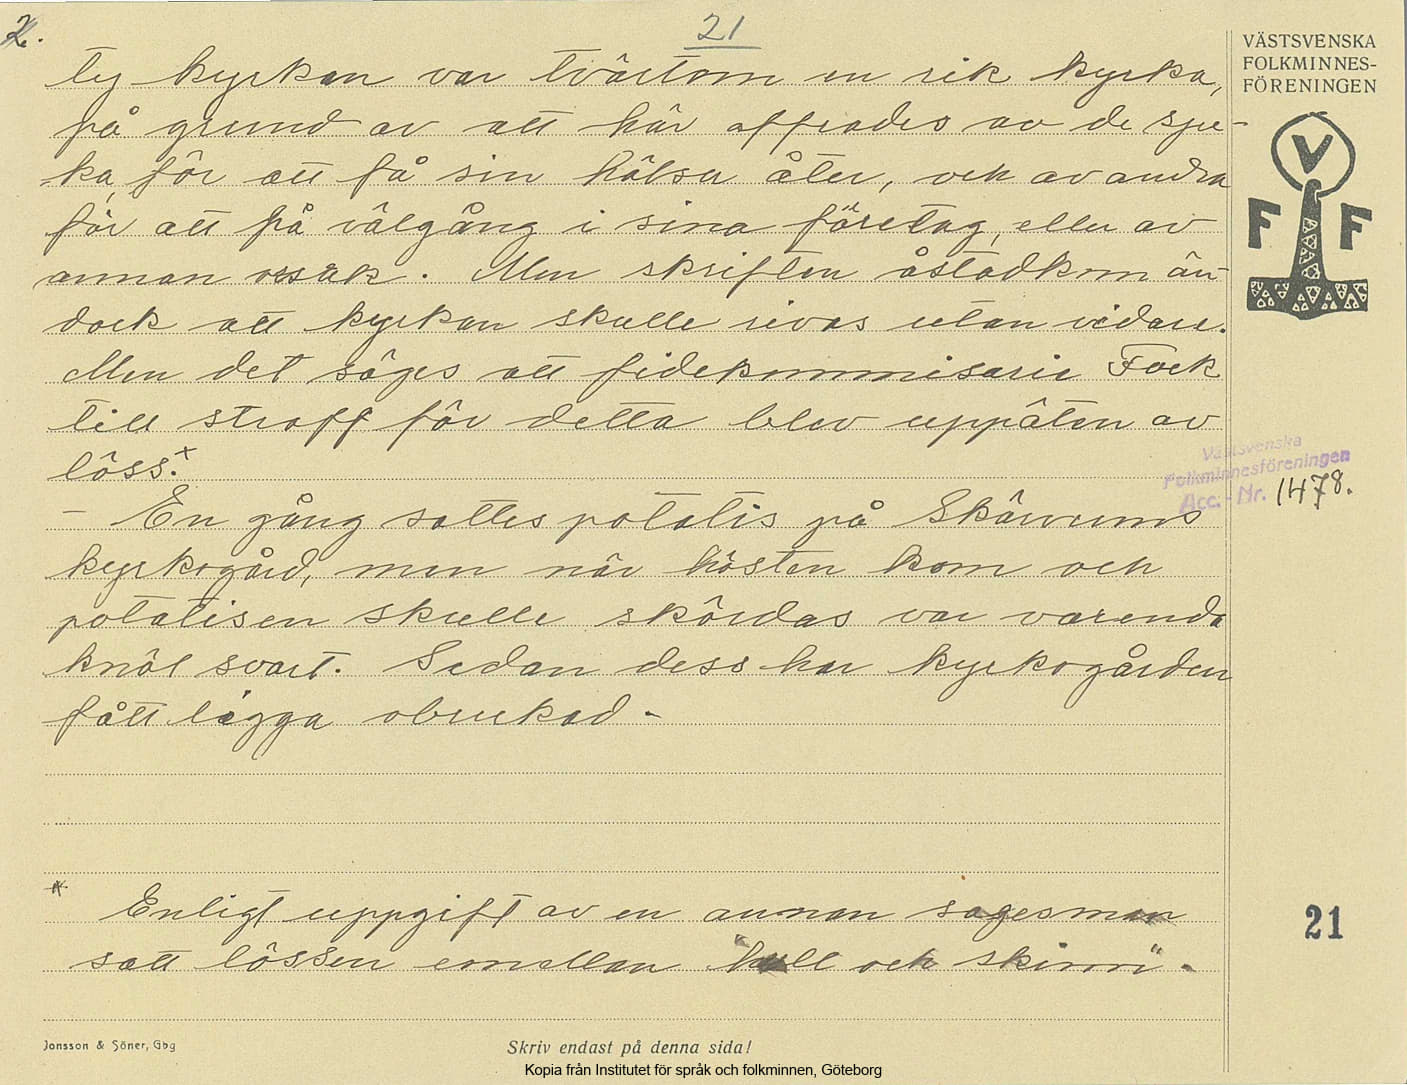 2.
21
VÄSTSVENSKA
FOLKMINNES-
FÖRENINGEN
V
F F
ty kyrkan var tvärtom en rik kyrka,
på grund av att här offrades av de sju-
ka, för att få sin hälsa åter, och av andra
för att få välgång i sina företag, eller av
annan orsak. Men skriften åstadkom än-
dock att kyrkan skulle rivas utan vidare.
Men det säges att fidekommisarie Fock
till straff för detta blev uppäten av
löss.x
Västsvenska
Folkminnesföreningen
Acc.-Nr. 1478.
- En gång sattes potatis på Skärvums
kyrkogård, men när hösten kom och
potatisen skulle skördas var varenda
knöl svart. Sedan dess har kyrkogården
fått ligga obrukad -
x Enligt uppgift av en annan sagesman
satt lössen emellan "hull och skinn".
21
Jonsson & Söner, Gbg
Skriv endast på denna sida!
Kopia från Institutet för språk och folkminnen, Göteborg